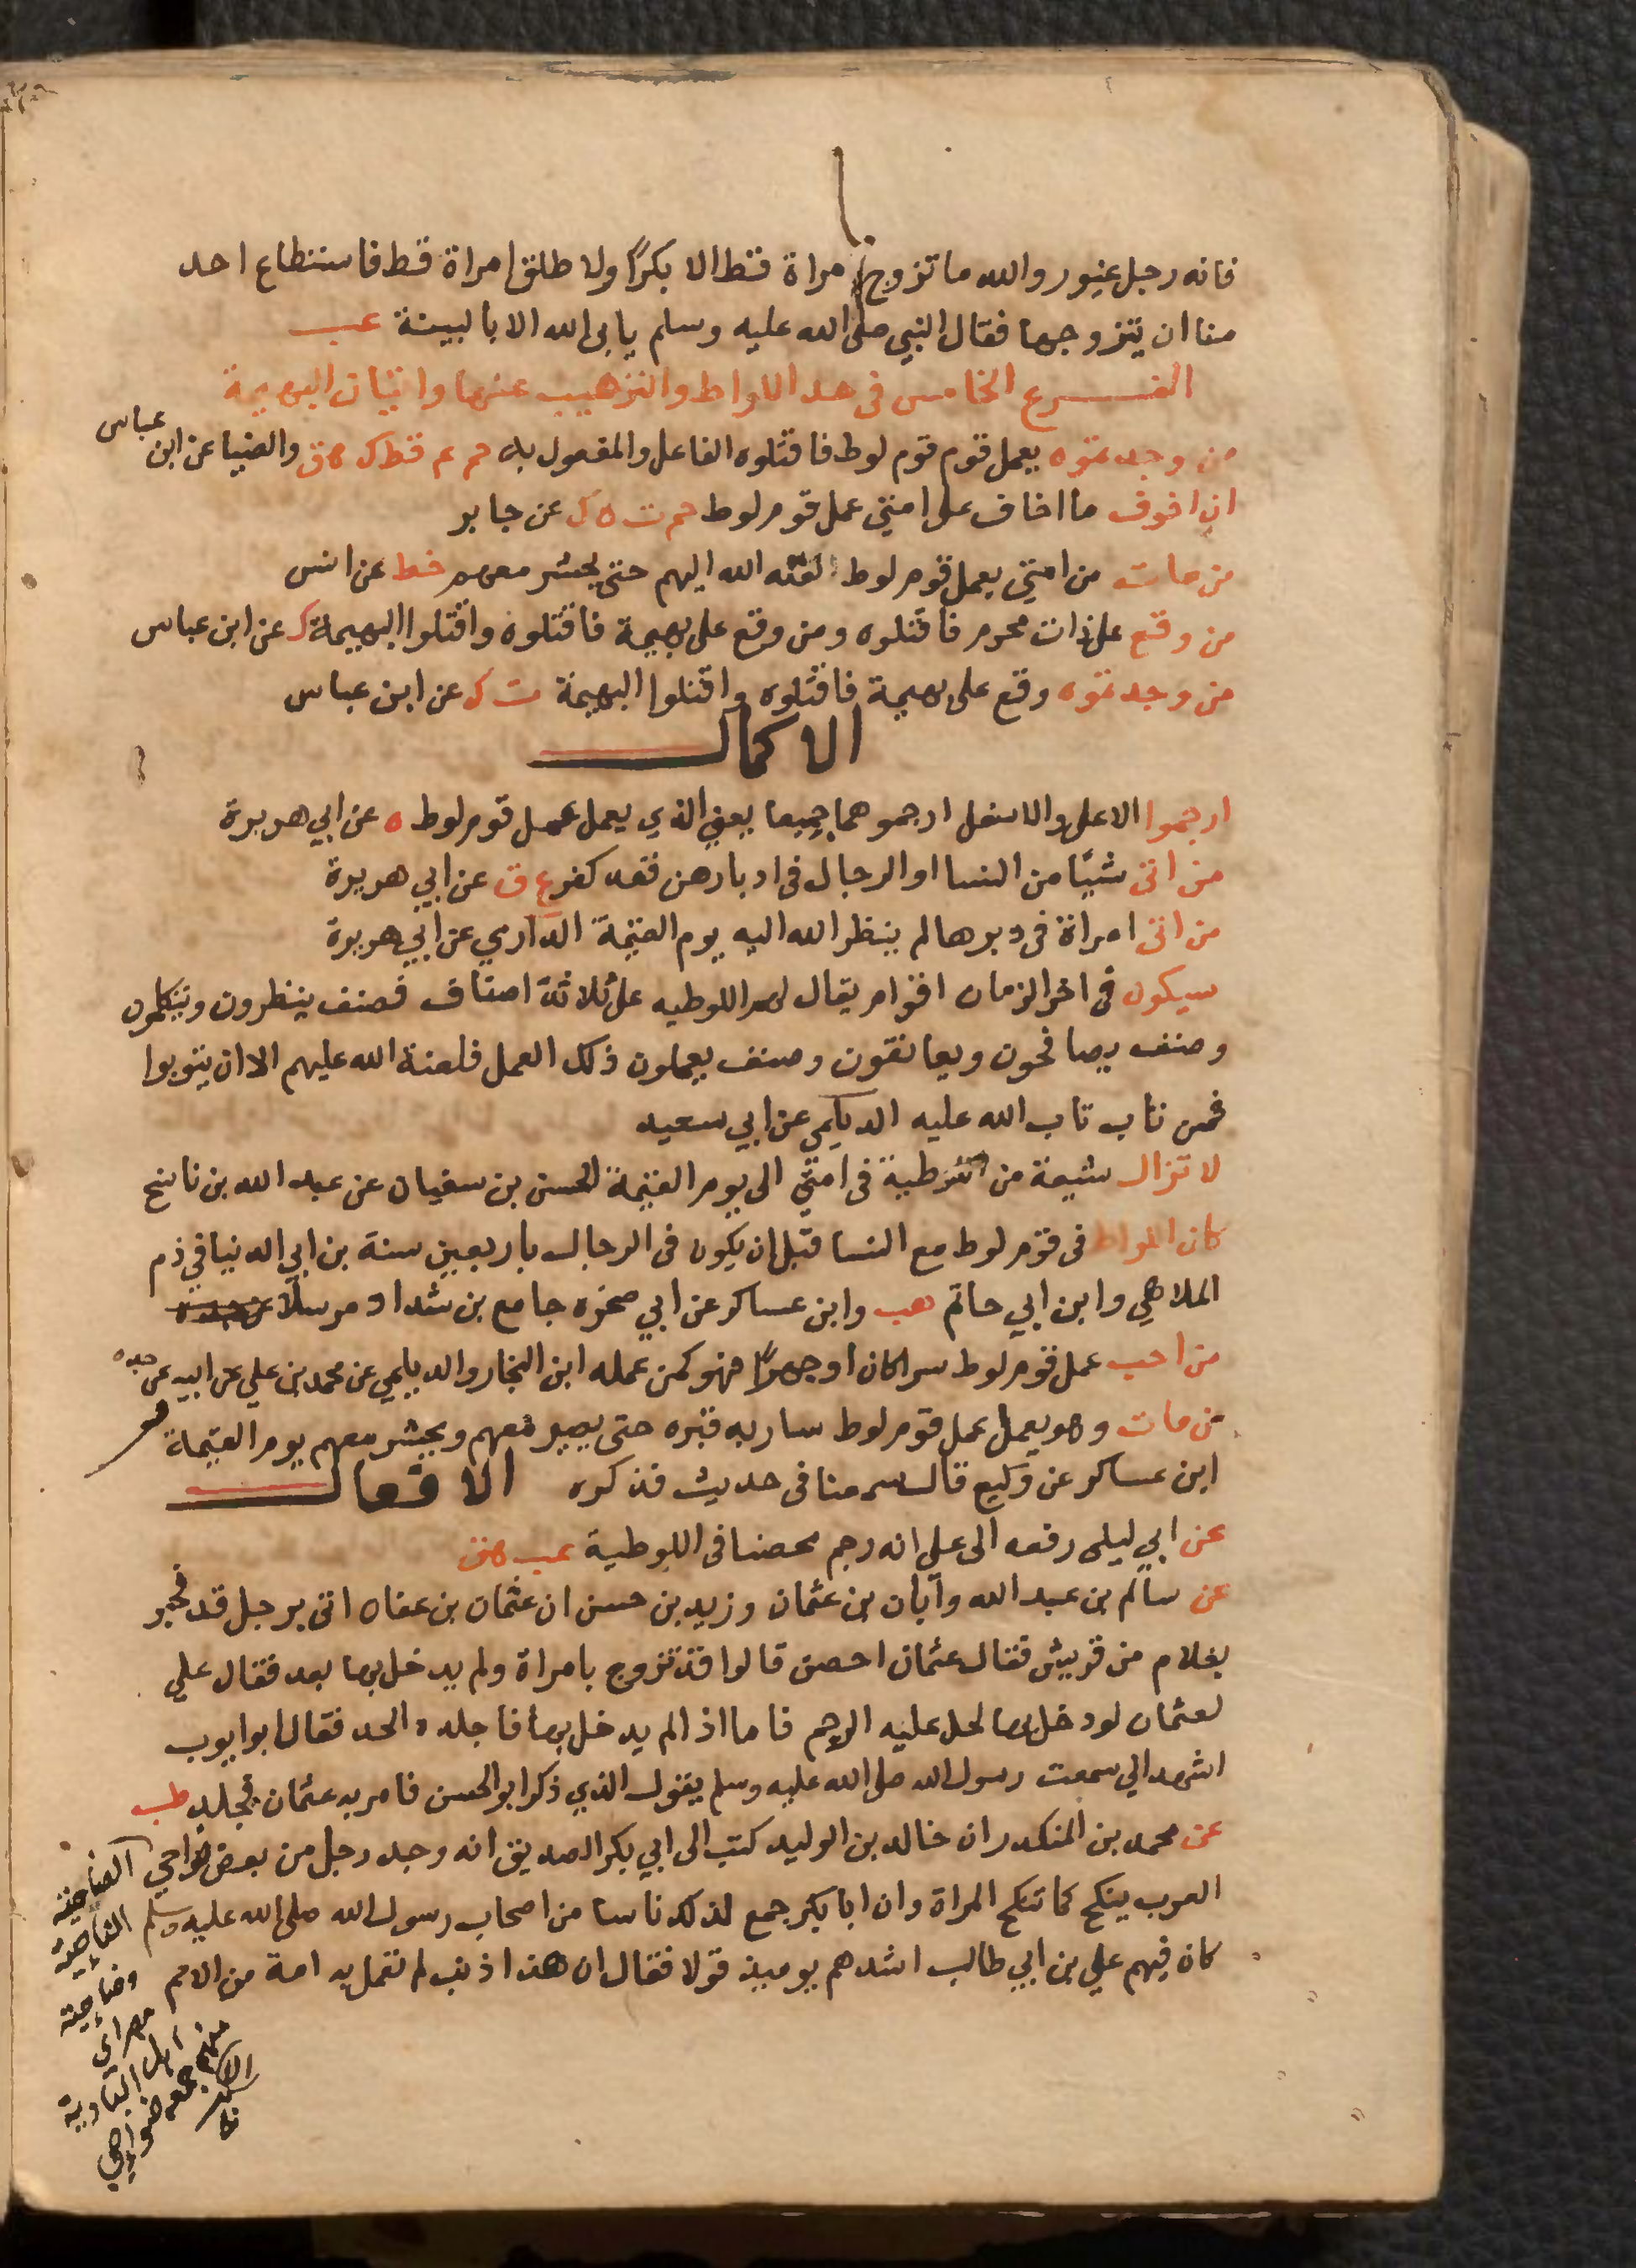 فانه رجل غيور والله ما تزوج امراة قط الا بكرًا ولا طلق امراة قط فاستطاع احد
منا ان يتزوجها فقال النبي صلى الله عليه وسلم يابى الله الا بالبينة عب
الفرع الخامس فى حد اللواط والترهيب عنها واتيان البهيمة
من وجدتموه يعمل قوم قوم لوط فاقتلوه الفاعل والمفعول به حم عم قط ك هق والضيا عن ابن عباس
ان اخوف ما اخاف على امتي عمل قوم لوط حم ت ه ك عن جابر
من مات من امتي يعمل قوم لوط نقله الله اليهم حتى يحشر معهم خط عن انس
من وقع على ذات محرم فاقتلوه ومن وقع على بهيمة فاقتلوه واقتلوا البهيمة ك عن ابن عباس
من وجدتموه وقع على بهيمة فاقتلوه واقتلوا البهيمة ت ك عن ابن عباس
الاكمال
ارجموا الاعلى والاسفل ارجموهما جميعا يعني الذي يعمل عمل قوم لوط ه عن ابي هريرة
من اتى شيًا من النسا او الرجال فى ادبارهن فقد كفر ع ق عن ابي هريرة
من اتى امراة فى دبرها لم ينظر الله اليه يوم القيمة الدارمي عن ابي هريرة
سيكون فى اخر الزمان اقوام يقال لهم اللوطيه على ثلاثة اصناف فصنف ينظرون ويتكلمون
وصنف يصافحون ويعانقون وصنف يعملون ذلك العمل فلعنة الله عليهم الا ان يتوبوا
فمن تاب تاب الله عليه الديلمي عن ابي سعيد
لا تزال شيعة من اللوطية فى امتي الى يوم القيمة الحسن بن سفيان عن عبد الله بن ناسح
كان اللواط فى قوم لوط مع النسا قبل ان يكون فى الرجال باربعين سنة بن ابي الدنيا في ذم
الملاهي وابن ابي حاتم هب وابن عساكر عن ابي صخره جامع بن شداد مرسلا
من احب عمل قوم لوط سرا كان او جهرًا فهو كمن عمله ابن النجار والديلمي عن محمد بن علي عن ابيه عن جده
من مات وهو يعمل عمل قوم لوط سار به قبره حتى يصير معهم ويحشر معهم يوم القيمة
ابن عساكر عن وكيع قال سمعنا فى حديث فذكره الافعال
عن ابي ليلى رفعه الى علي انه رجم محصنا فى اللوطية عب هق
عن سالم بن عبد الله وابان بن عثمان وزيد بن حسن ان عثمان بن عفان اتى برجل قد فجر
بغلام من قريش فقال عثمان احصن قالوا قد تزوج بامراة ولم يدخل بها بعد فقال علي
لعثمان لو دخل بها لحل عليه الرجم فاما اذ الم يدخل بها فاجلده الحد فقال ابو ايوب
اشهد اني سمعت رسول الله صلى الله عليه وسلم يقول الذي ذكر ابو الحسن فامر به عثمان فجلد طب
عن محمد بن المنكدر ان خالد بن الوليد كتب الى ابي بكر الصديق انه وجد رجل من بعض ضواحي
العرب ينكح كما تنكح المراة وان ابا بكر جمع لذلك ناسا من اصحاب رسول الله صلى الله عليه وسلم
كان فيهم علي بن ابي طالب اشدهم يوميذ قولا فقال ان هذا ذنب لم تعمل به امة من الامم
الضاحية
الناحية
وضاحية
مضر اي
اهل البادية
منهم جمعه ضواحي